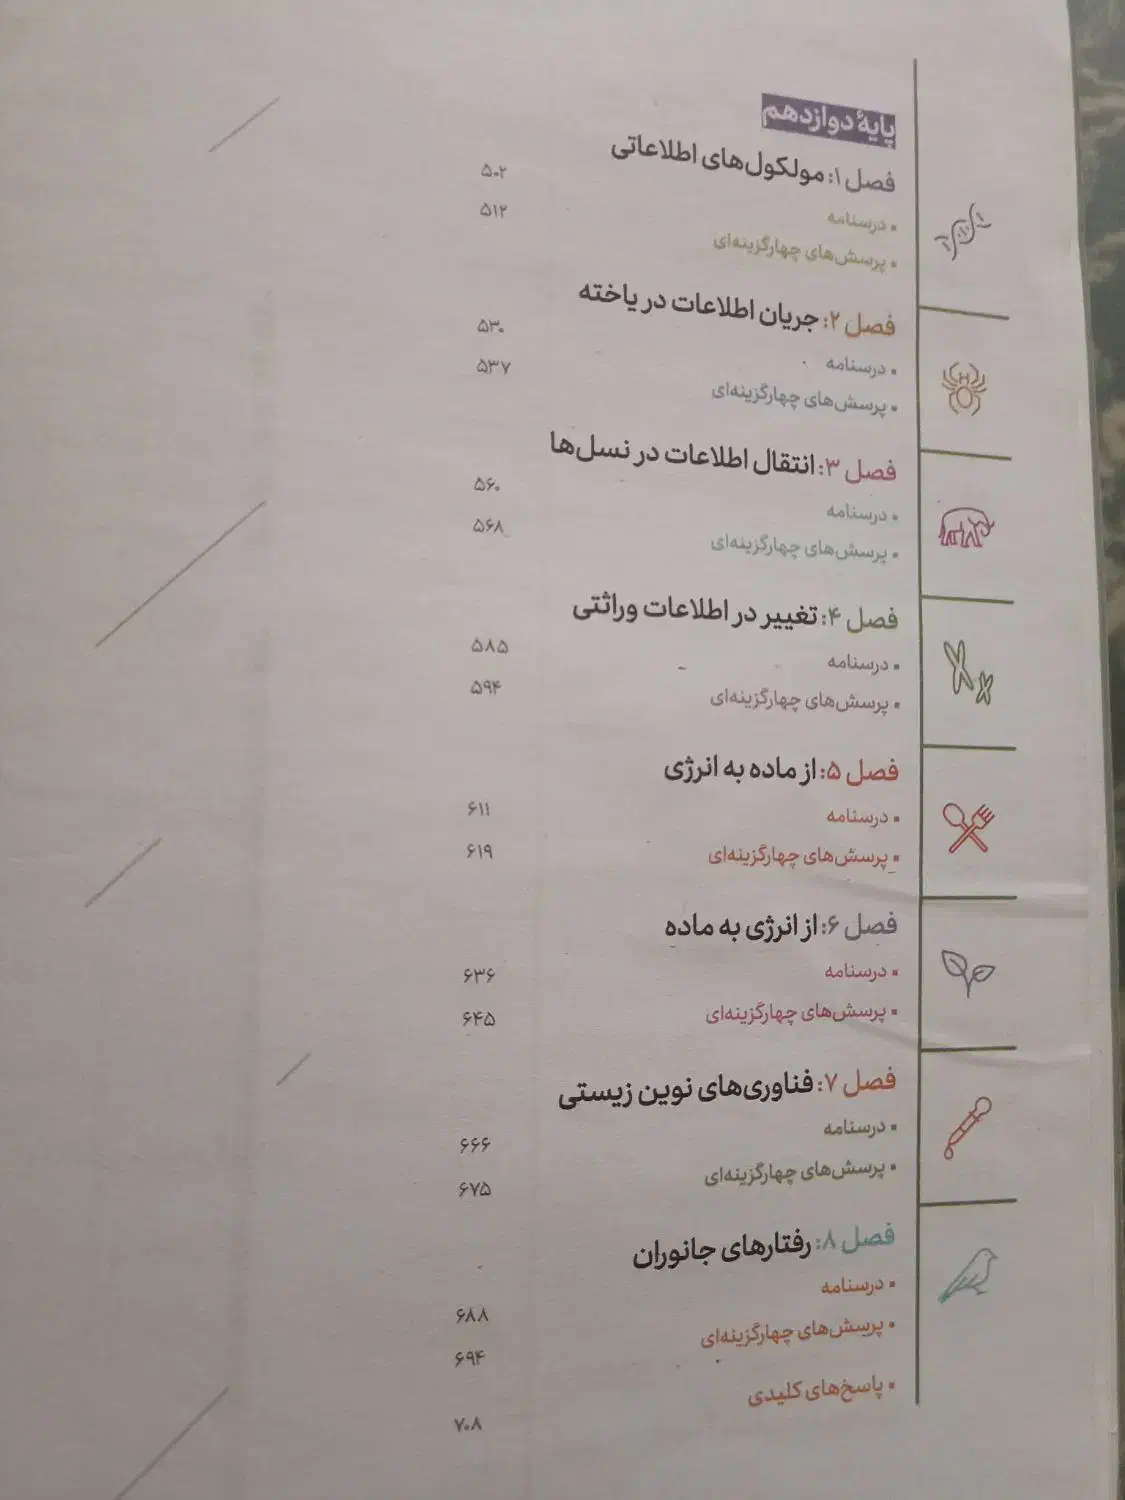 پایهٔ دوازدهم
فصل ۱: مولکول‌های اطلاعاتی
▪ درسنامه ۵۰۲
▪ پرسش‌های چهارگزینه‌ای ۵۱۲
فصل ۲: جریان اطلاعات در یاخته
▪ درسنامه ۵۳۰
▪ پرسش‌های چهارگزینه‌ای ۵۳۷
فصل ۳: انتقال اطلاعات در نسل‌ها
▪ درسنامه ۵۶۰
▪ پرسش‌های چهارگزینه‌ای ۵۶۸
فصل ۴: تغییر در اطلاعات وراثتی
▪ درسنامه ۵۸۵
▪ پرسش‌های چهارگزینه‌ای ۵۹۴
فصل ۵: از ماده به انرژی
▪ درسنامه ۶۱۱
▪ پرسش‌های چهارگزینه‌ای ۶۱۹
فصل ۶: از انرژی به ماده
▪ درسنامه ۶۳۶
▪ پرسش‌های چهارگزینه‌ای ۶۴۵
فصل ۷: فناوری‌های نوین زیستی
▪ درسنامه ۶۶۶
▪ پرسش‌های چهارگزینه‌ای ۶۷۵
فصل ۸: رفتارهای جانوران
▪ درسنامه ۶۸۸
▪ پرسش‌های چهارگزینه‌ای ۶۹۴
▪ پاسخ‌های کلیدی ۷۰۸